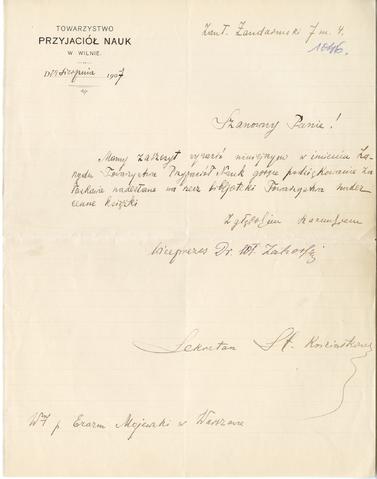 TOWARZYSTWO
PRZYJACIÓŁ NAUK
W WILNIE.
Sierpnia 1907
Zauł. Żandarmski 7 m. 4.
Szanowny Panie!
Mamy zaszczyt wyrazić niniejszym w imieniu Za-
rządu Towarzystwa Przyjaciół Nauk gorące podziękowanie za
łaskawie nadesłane na rzecz bibljoteki Towarzystwa
książki
Z głębokim szacunkiem
Viceprezes Dr. Wł. Zahorski
Sekretarz St. Kościałkowski
p. Erazm Majewski w Warszawie